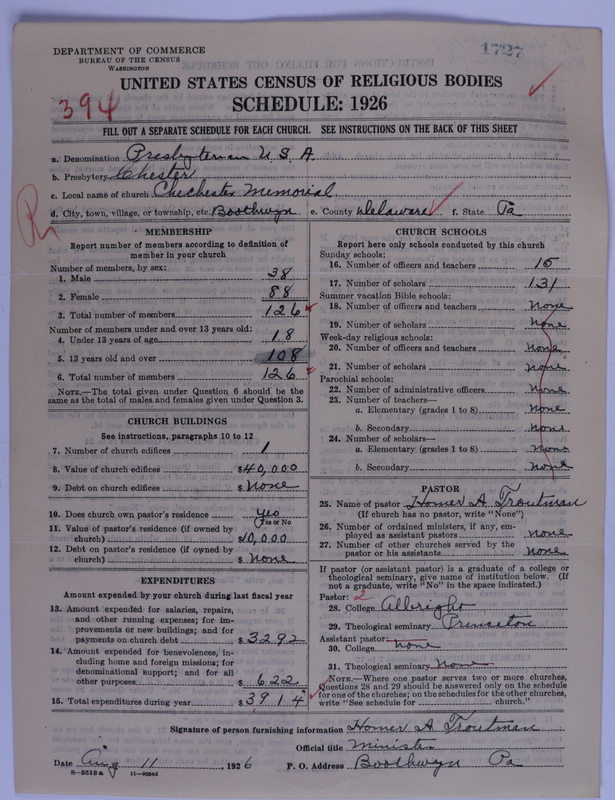 DEPARTMENT OF COMMERCE
BUREAU OF THE CENSUS
WASHINGTON
1727
UNITED STATES CENSUS OF RELIGIOUS BODIES
SCHEDULE: 1926
394
FILL OUT A SEPARATE SCHEDULE FOR EACH CHURCH. SEE INSTRUCTIONS ON THE BACK OF THIS SHEET
a. Denomination Presbyterian U.S.A.
b. Presbytery Chester
c. Local name of church Chichester Memorial
d. City, town, village, or township, etc. Boothwyn e. County Delaware f. State Pa
MEMBERSHIP
Report number of members according to definition of
member in your church
Number of members, by sex:
1. Male 38
2. Female 88
3. Total number of members 126
Number of members under and over 13 years old:
4. Under 13 years of age 18
5. 13 years old and over 108
6. Total number of members 126
NOTE.—The total given under Question 6 should be the
same as the total of males and females given under Question 3.
CHURCH BUILDINGS
See instructions, paragraphs 10 to 12
7. Number of church edifices 1
8. Value of church edifices $40,000
9. Debt on church edifices $ None
10. Does church own pastor's residence yes
(Yes or No)
11. Value of pastor's residence (if owned by
church) $10,000
12. Debt on pastor's residence (if owned by
church) $ None
EXPENDITURES
Amount expended by your church during last fiscal year
13. Amount expended for salaries, repairs,
and other running expenses; for im-
provements or new buildings; and for
payments on church debt $3292
14. Amount expended for benevolences, in-
cluding home and foreign missions; for
denominational support; and for all
other purposes $ 622
15. Total expenditures during year $3914
CHURCH SCHOOLS
Report here only schools conducted by this church
Sunday schools:
16. Number of officers and teachers 15
17. Number of scholars 131
Summer vacation Bible schools:
18. Number of officers and teachers None
19. Number of scholars None
Week-day religious schools:
20. Number of officers and teachers None
21. Number of scholars None
Parochial schools:
22. Number of administrative officers None
23. Number of teachers—
a. Elementary (grades 1 to 8) None
b. Secondary None
24. Number of scholars—
a. Elementary (grades 1 to 8) None
b. Secondary None
PASTOR
25. Name of pastor Homer A. Troutman
(If church has no pastor, write "None")
26. Number of ordained ministers, if any, em-
ployed as assistant pastors none
27. Number of other churches served by the
pastor or his assistants None
If pastor (or assistant pastor) is a graduate of a college or
theological seminary, give name of institution below. (If
not a graduate, write "No" in the space indicated.)
Pastor: 2
28. College Albright
29. Theological seminary Princeton
Assistant pastor:
30. College none
31. Theological seminary None
NOTE.—Where one pastor serves two or more churches,
Questions 28 and 29 should be answered only on the schedule
for one of the churches; on the schedules for the other churches,
write "See schedule for church."
Signature of person furnishing information Homer A. Troutman
Official title Minister
Date Aug 11, 1926 P. O. Address Boothwyn Pa
8—5518a 11—9054d